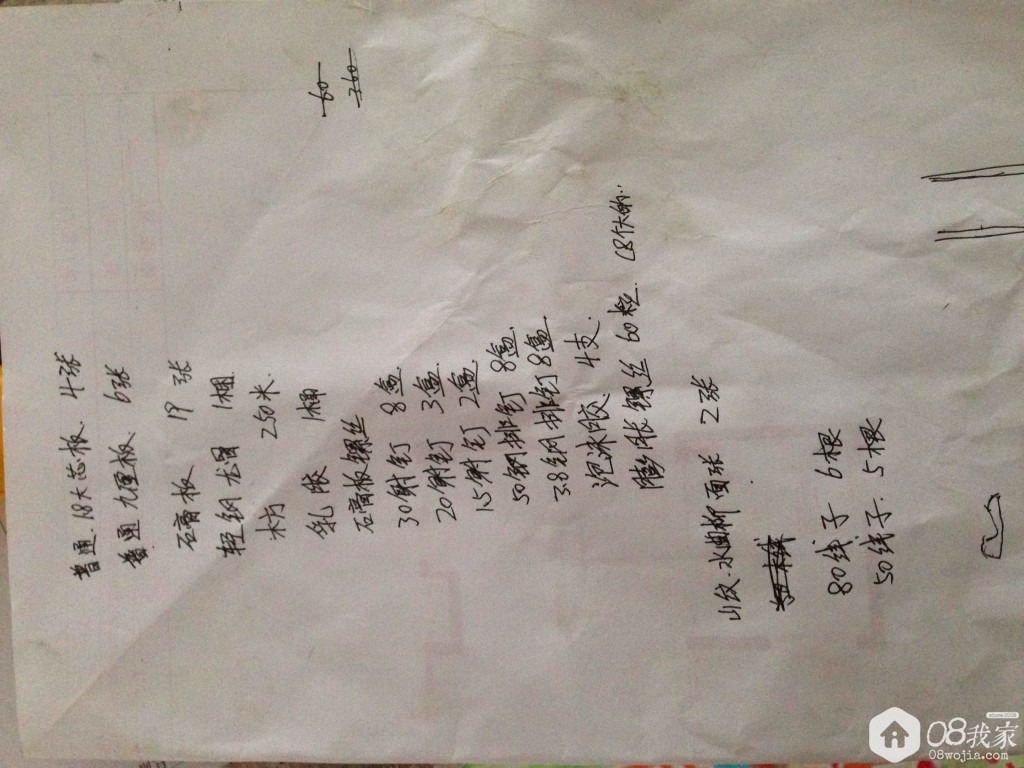 普通 18大芯板 4张
普通 九厘板 6张
石膏板 19张
轻钢龙骨 1捆
木方 250米
乳胶 1桶
石膏板螺丝
30射钉 8盒
20射钉 3盒
15射钉 2盒
50钢排钉 8盒
3.8钢排钉 8盒
泡沫胶 4支
膨胀螺丝 60粒 (8个大的..
山纹.水曲柳面板 2张
80线子 6根
50线子. 5根
60
360
08我家
08wojia.com